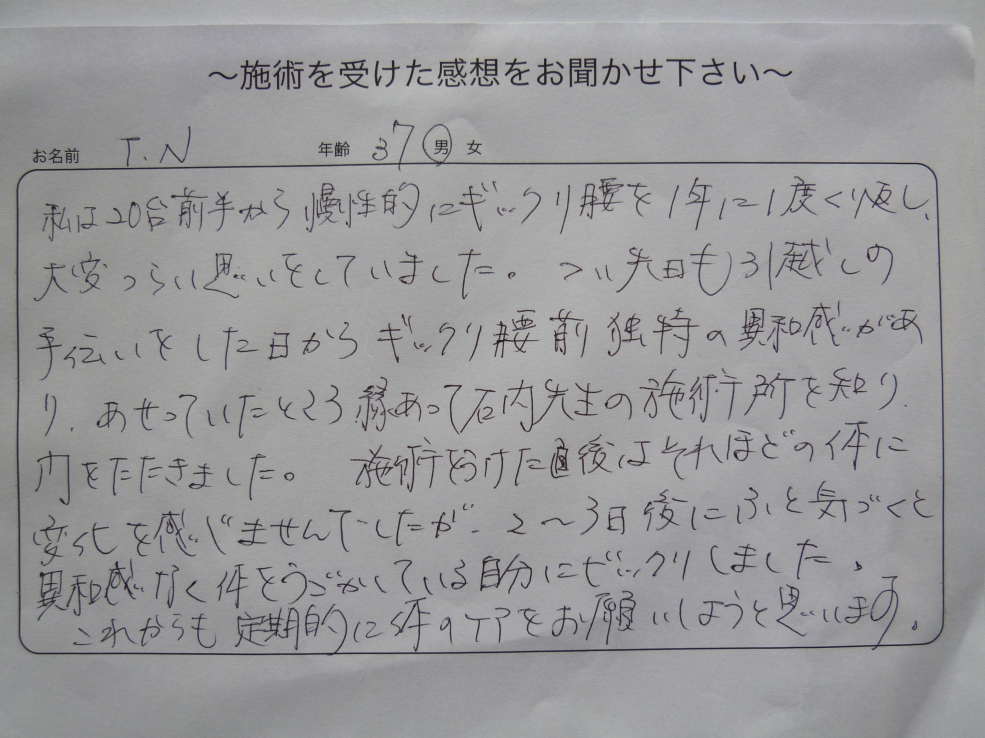 ～施術を受けた感想をお聞かせ下さい～
お名前 T.N 年齢 37 男 女
私は20台前半から慢性的にギックリ腰を1年に1度くり返し、
大変つらい思いをしていました。 つい先日も引越しの
手伝いをした日からギックリ腰前独特の異和感があ
り、あせっていたところ縁あって石内先生の施術所を知り、
門をたたきました。 施術をうけた直後はそれほどの体に
変化を感じませんでしたが、2～3日後にふと気づくと
異和感なく体をうごかしている自分にビックリしました。
これからも定期的に体のケアをお願いしようと思います。